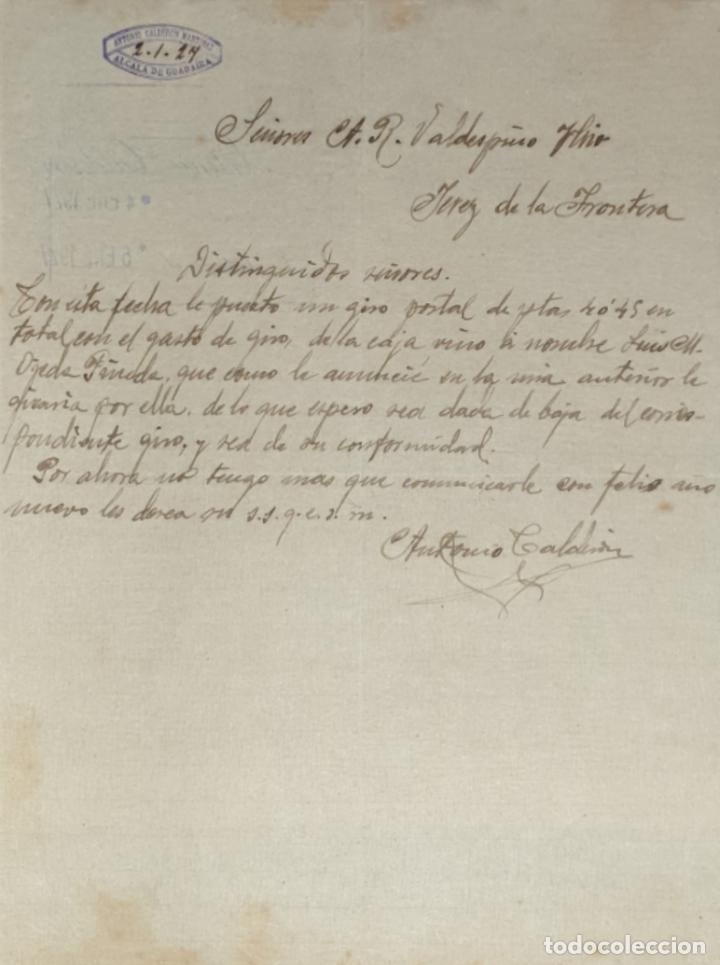 ANTONIO CALDERÓN MARTINEZ
2-1-27
ALCALÁ DE GUADAIRA
Señores A. R. Valdespino Hno
Jerez de la Frontera
Distinguidos señores.
Con esta fecha le puesto un giro postal de ptas 40'45 en
total con el gasto de giro, de la caja vino a nombre Luis M.
Ojeda Pineda, que como le anuncié en la mia anterior le
giraria por ella, de lo que espero sea dada de baja del corres-
pondiente giro, y sea de su conformidad.
Por ahora no tengo mas que comunicarle con felis año
nuevo les decea su s.s.q.e.s.m.
Antonio Calderón
todocoleccion